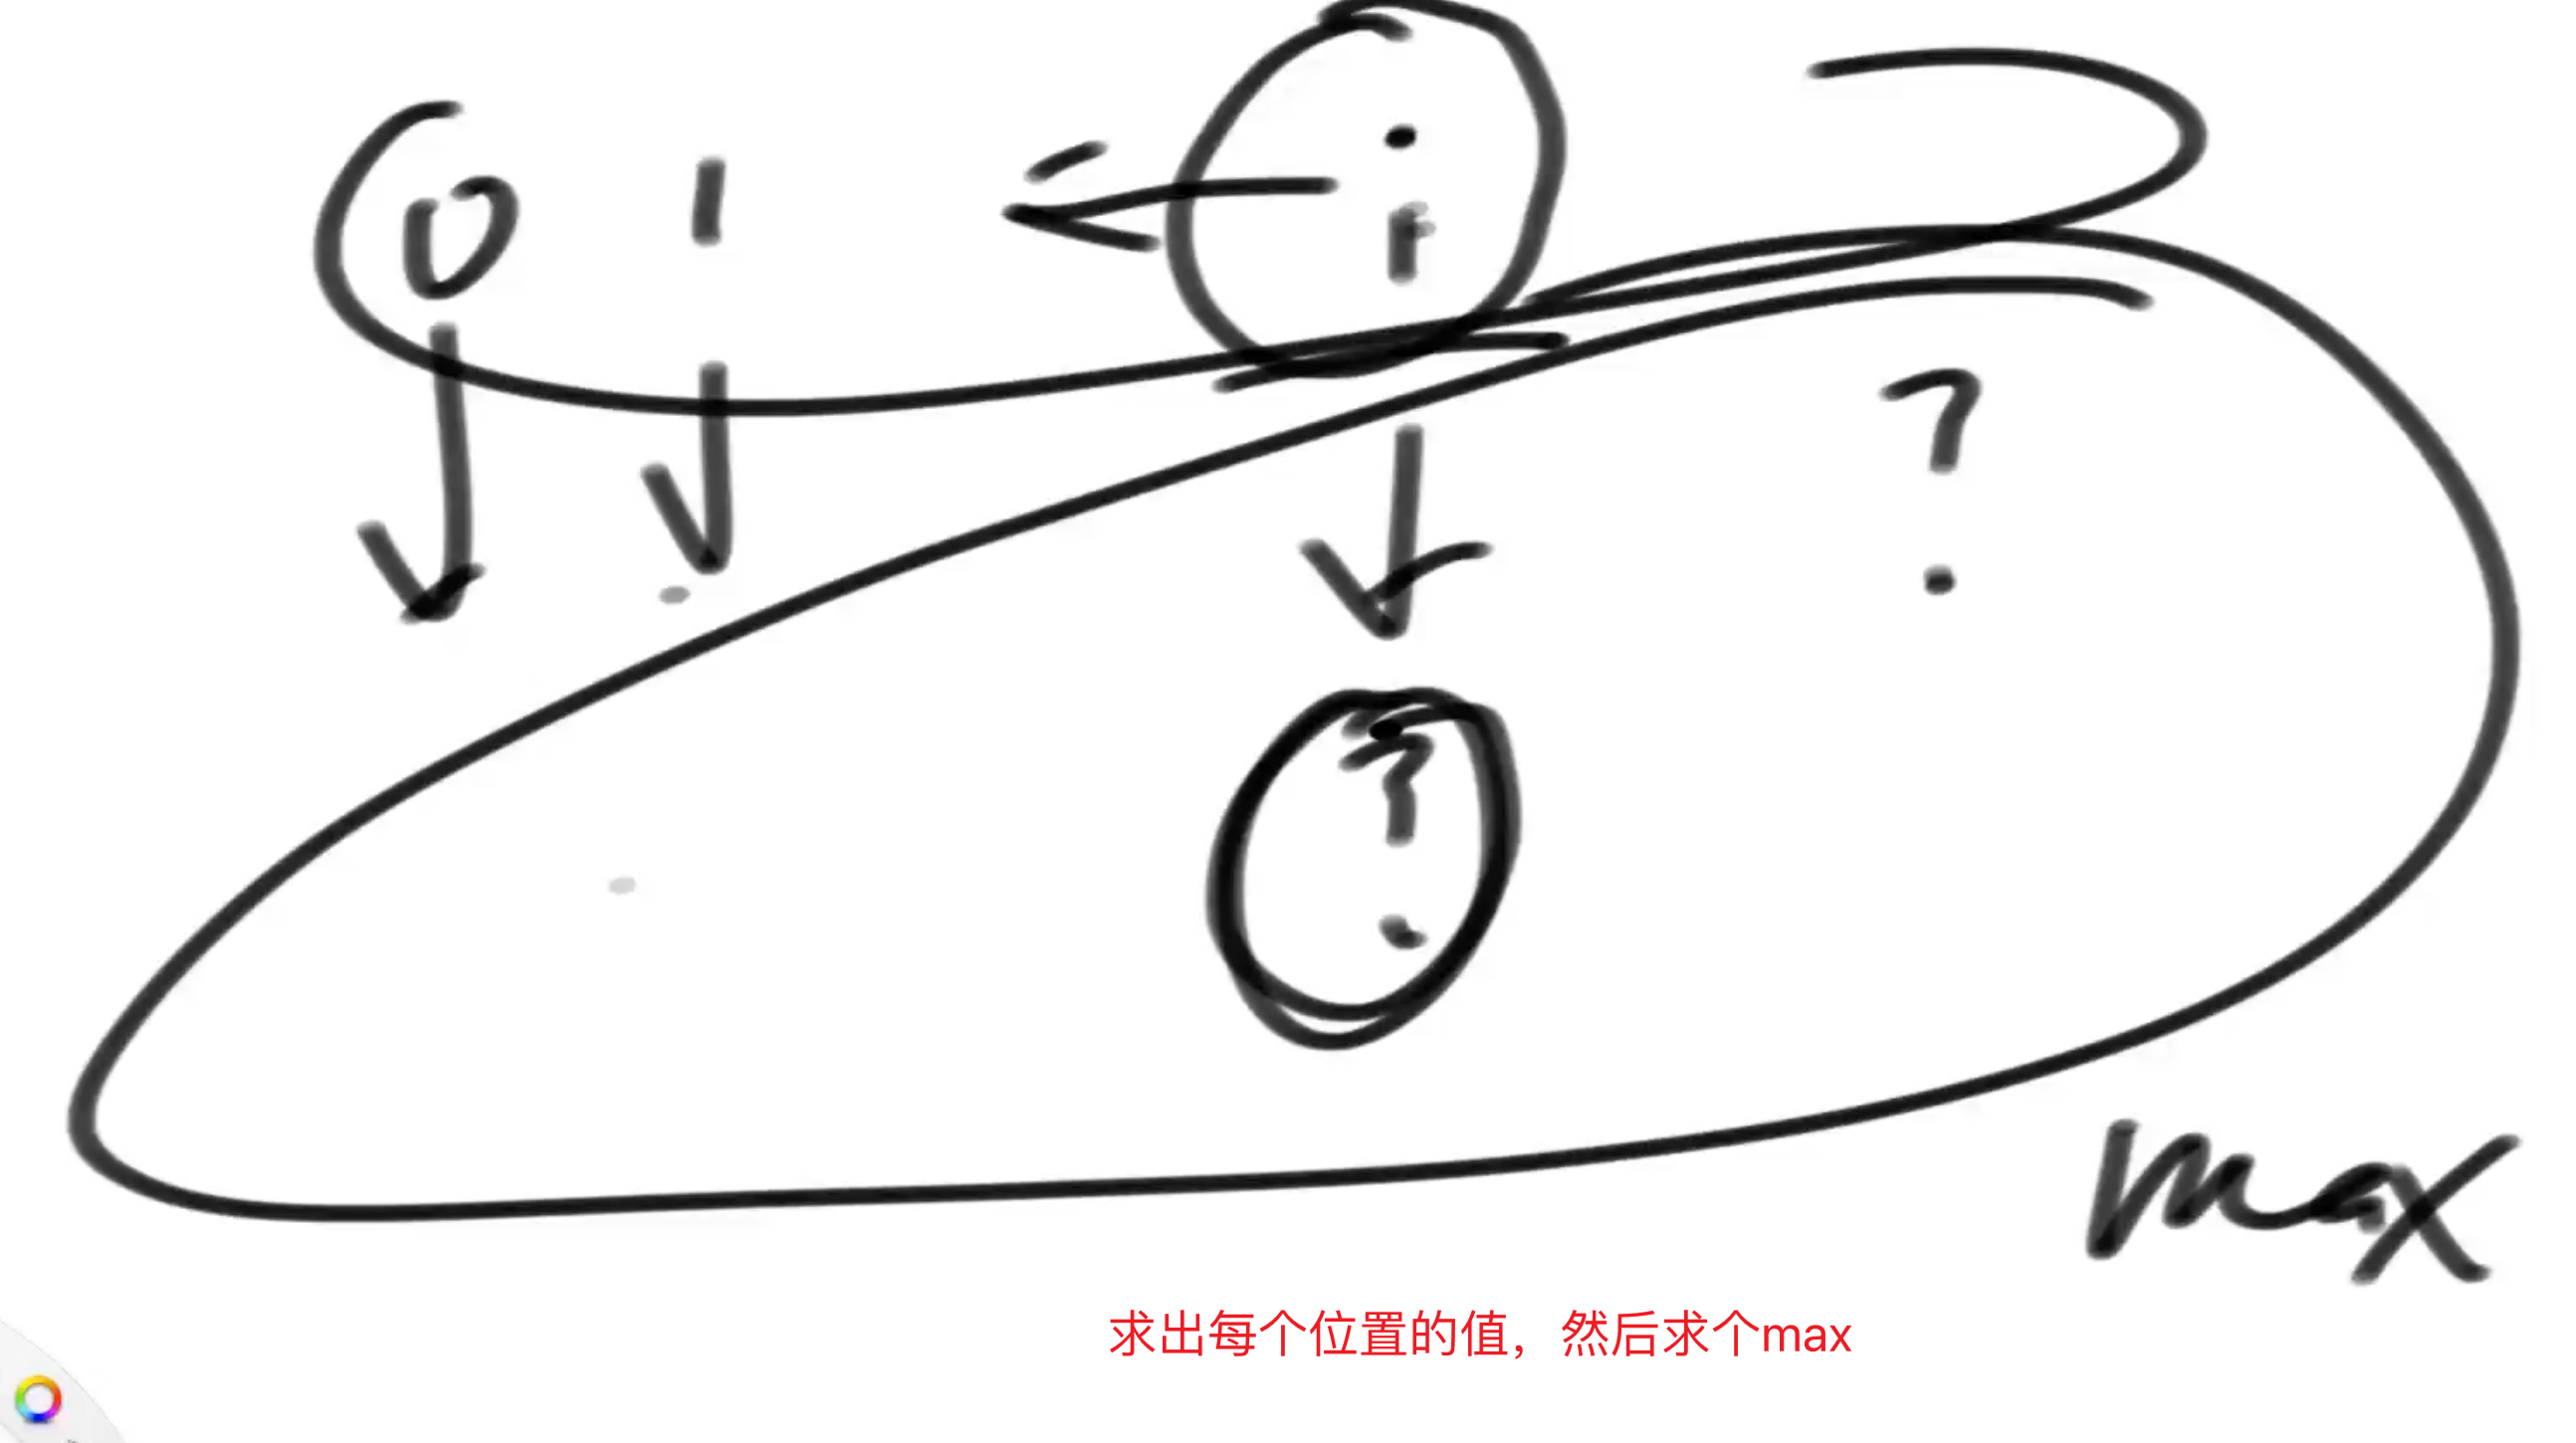 0 1 i
?
?
max
求出每个位置的值，然后求个max